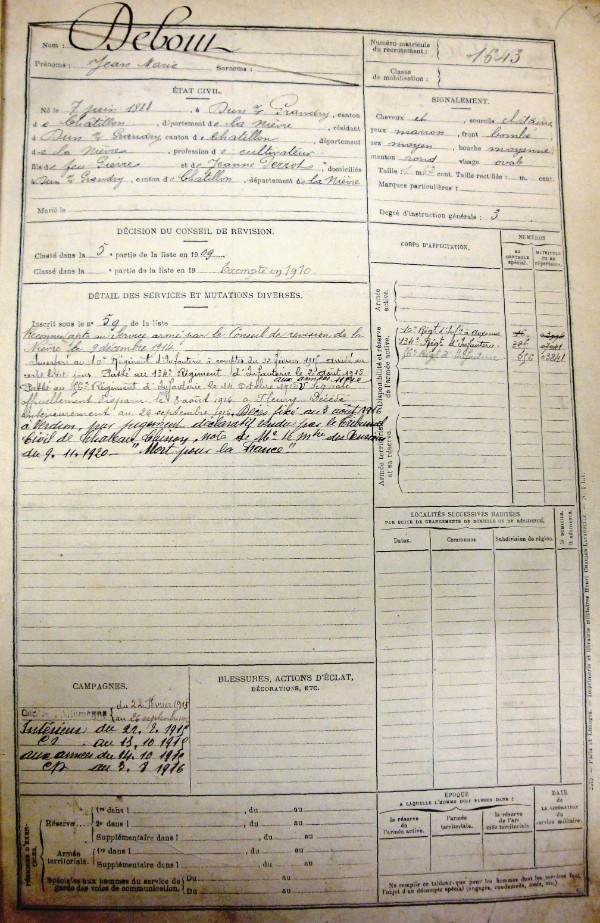 Nom : Debout
Numéro matricule du recrutement : 1643
Prénoms : Jean Marie Surnoms :
Classe de mobilisation :
ÉTAT CIVIL.
Né le 7 juin 1888, à Dun s/ Grandry, canton
de Chatillon, département de la Nièvre, résidant
à Dun s/ Grandry, canton de Chatillon, département
de la Nièvre, profession de cultivateur
fils de feu Pierre et de Jeanne, domiciliés
Dun s/ Grandry, canton de Chatillon, département de la Nièvre
Marié le
SIGNALEMENT.
Cheveux et sourcils châtains
yeux marron, front bombé
nez moyen, bouche moyenne
menton rond visage ovale
Taille : 1 m. cent. Taille rectifiée : m. cent.
Marques particulières :
Degré d'instruction générale : 3
DÉCISION DU CONSEIL DE REVISION.
Classé dans la 5e partie de la liste en 1909
Classé dans la partie de la liste en 19 Exempté en 1910.
DÉTAIL DES SERVICES ET MUTATIONS DIVERSES.
Inscrit sous le n° 59 de la liste
Reconnu apte au service armé par le Conseil de revision de la
Nièvre le 9 décembre 1914.
Incorporé au Régiment d'Infanterie à compter du 22 février 1915
Passé au 134e Régiment d'Infanterie le 2 août 1915
aux armées
Passé au Régiment d'Infanterie le 14 octobre 1915
officiellement disparu le 3 août 1916 à Fleury. Décédé
antérieurement au 26 septembre 1916. Décès fixé au 3 août 1916
à Verdun, par jugement déclaratif rendu par le Tribunal
Civil de Chateau Chinon, note de Mr le Mtre des Pensions
du 9.11.1920 "Mort pour la France"
CORPS D'AFFECTATION.
NUMÉROS
AU CONTRÔLE spécial.
MATRICULE OU AU répertoire.
Armée active.
Disponibilité et réserve de l'armée active.
134e Régt d'Infanterie
Régt d'Infanterie
Armée territoriale et sa réserve.
LOCALITÉS SUCCESSIVES HABITÉES
PAR SUITE DE CHANGEMENTS DE DOMICILE OU DE RÉSIDENCE.
Dates.
Communes
Subdivision de région.
D. DOMICILE.
R. RÉSIDENCE.
CAMPAGNES.
du 22 février 1915
Allemagne
au 26 septembre
Intérieur du 22.2.1915
CS au 13.10.1915
aux armées du 14.10.1915
CD au 3.8.1916
BLESSURES, ACTIONS D'ÉCLAT,
DÉCORATIONS, ETC.
PÉRIODES D'EXERCICES.
Réserve....
1re dans l , du au
2e dans l , du au
Supplémentaire dans l , du au
Armée territoriale.
1re dans l , du au
Supplémentaire dans l , du au
Spéciales aux hommes du service de garde des voies de communication.
Du au
Du au
ÉPOQUE
A LAQUELLE L'HOMME DOIT PASSER DANS :
la réserve de l'armée active.
l'armée territoriale.
la réserve de l'armée territoriale
DATE
DE LA LIBÉRATION du service militaire.
Ne remplir ce tableau que pour les hommes dont les services font
l'objet d'un décompte spécial (engagés, condamnés, omis, etc.)